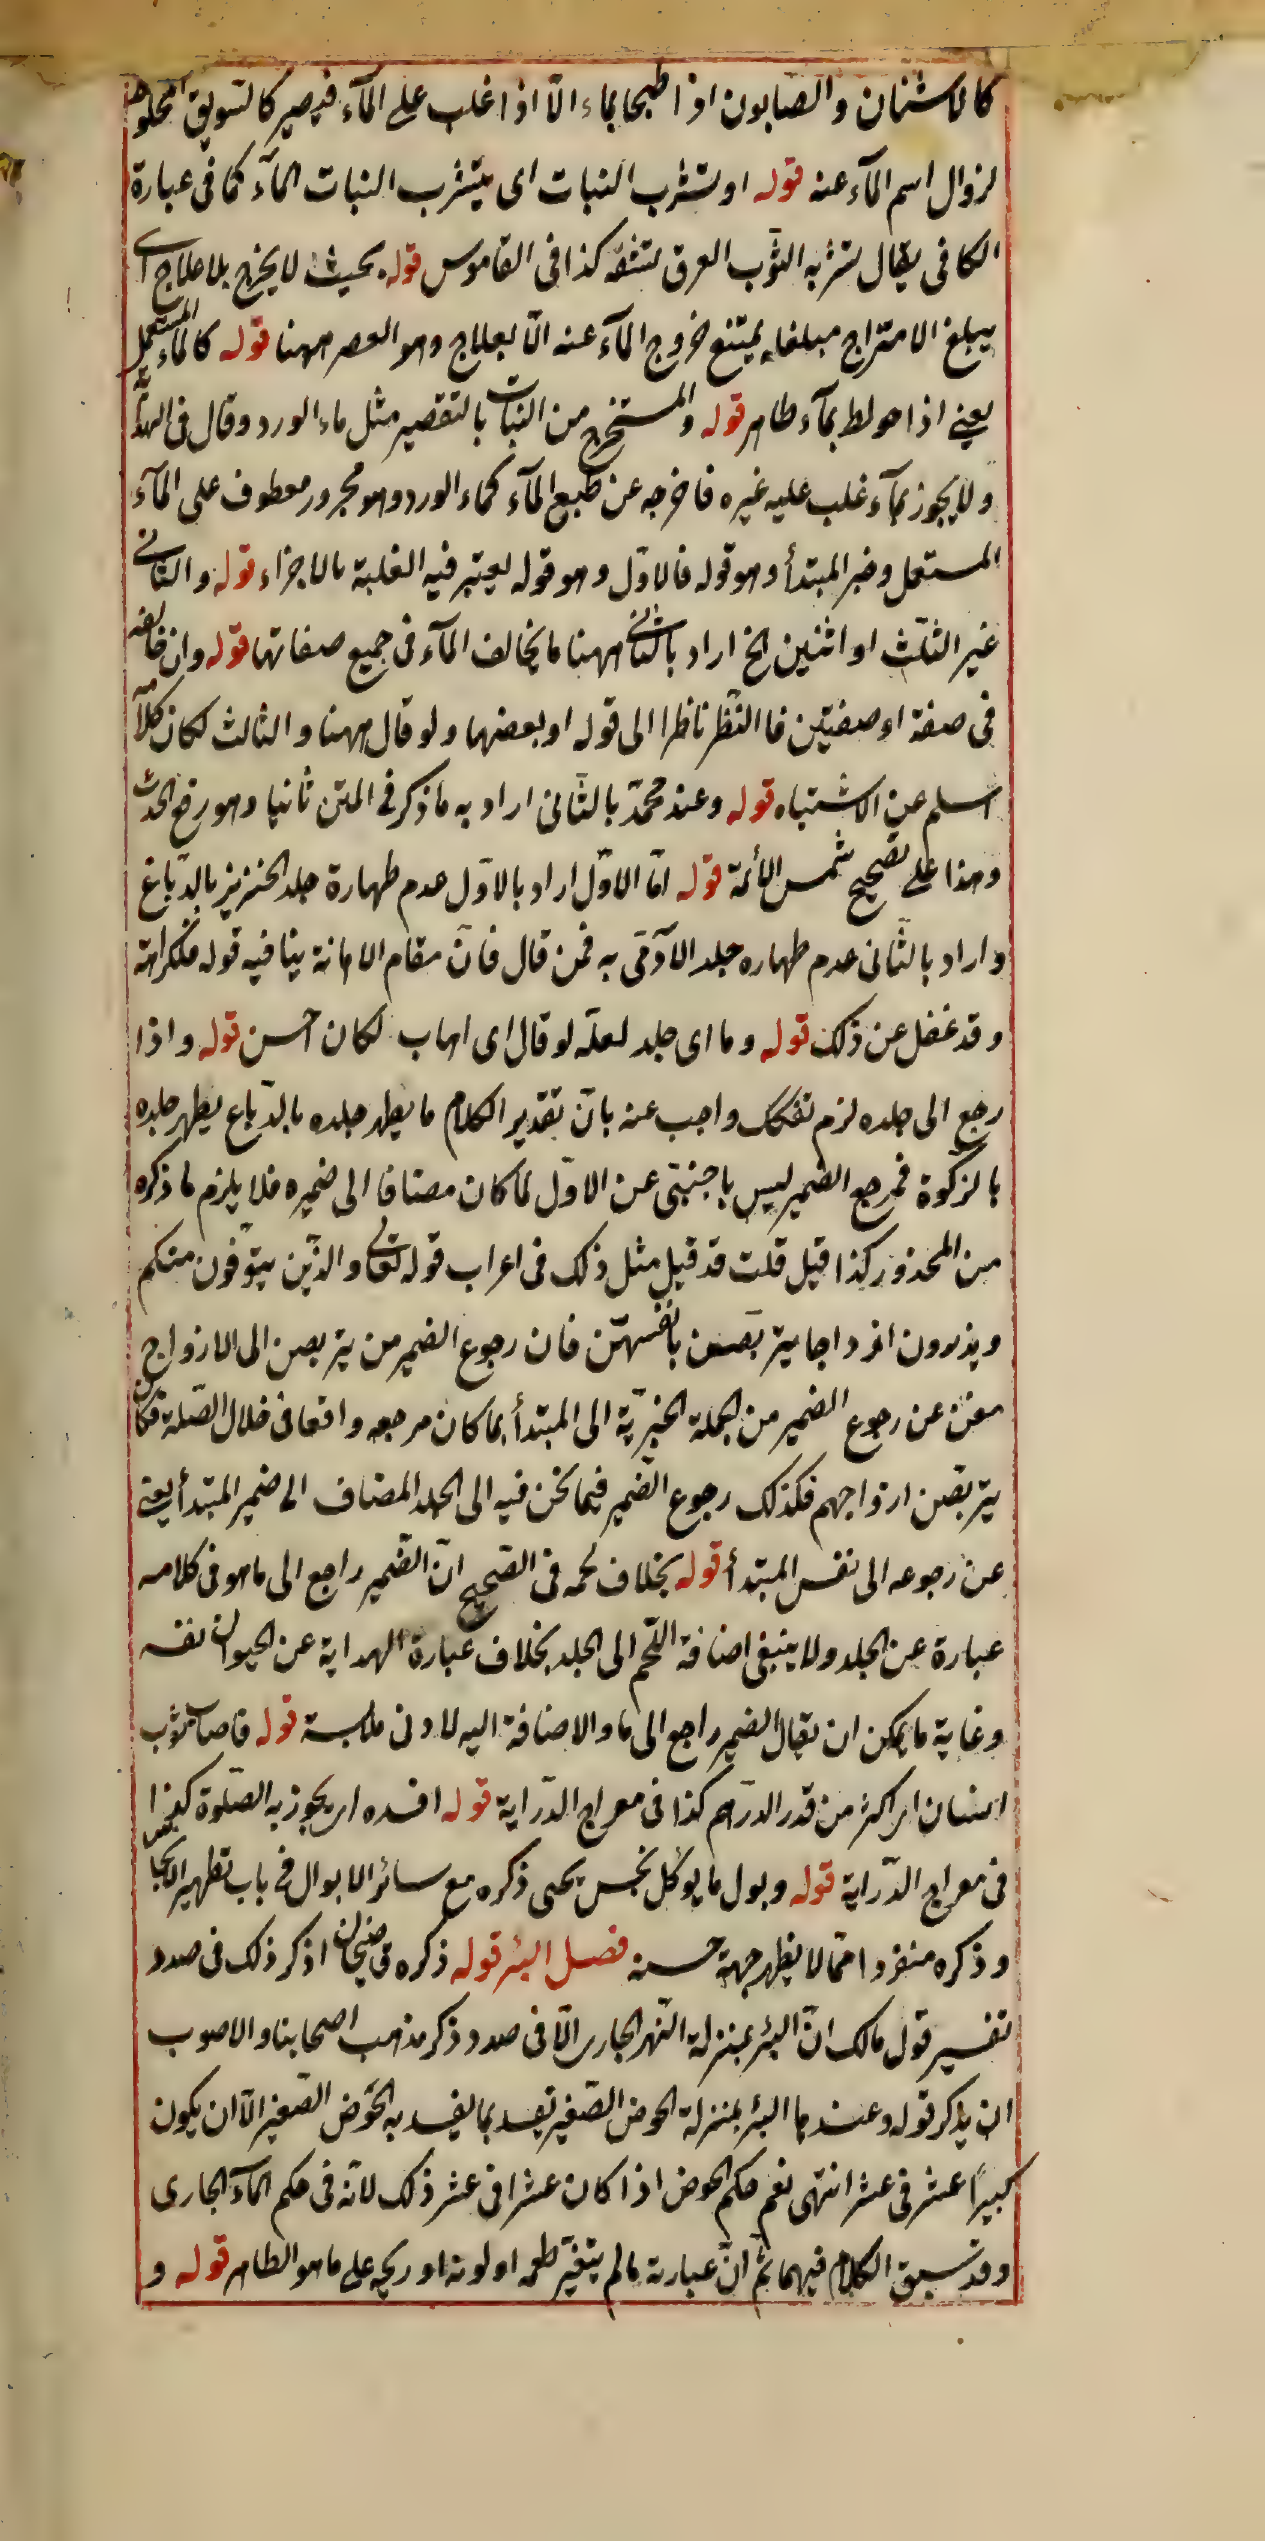 كالاشنان والصابون اذا طبخا بماء الّا اذا غلب على المآء فيصير كالسّويق المخلوط
لزوال اسم المآء عنه قوله او بتشرّب النبات اى يتشرب النبات المآء كما فى عبارة
الكافى يقال تشربه الثّوب العرق تنشفه كذا فى القاموس قوله بحيث لا يخرج بلا علاج اى
يبلغ الامتزاج مبلغا يمتنع خروج المآء عنه الّا بعلاج وهو العصر ههنا قوله كالماء المستعمل
يعنى اذا خولط بمآء طاهر قوله والمستخرج من النبات بالتقصير مثل ماء الورد وقال فى الهداية
ولا يجوز بمآء غلب عليه غيره فاخرجه عن طبع المآء كماء الورد وهو مجرور معطوف على المآء
المستعمل وخبر المبتدأ وهو قوله فالاوّل وهو قوله يعتبر فيه الغلبة بالاجزاء قوله والثانى
غير الثلث او اثنين الخ اراد بالثانى ههنا ما يخالف المآء فى جميع صفاتها قوله وان خالفه
فى صفة او صفتين فالنّظر ناظرا الى قوله او بعضها ولو قال ههنا والثالث لكان كلامه
اسلم عن الاشتباه قوله وعند محمّد بالثانى اراد به ما ذكر فى المتن ثانيا وهو رفع الحدث
وهذا على تصحيح شمس الأئمة قوله امّا الاوّل اراد بالاوّل عدم طهارة جلد الخنزير بالدّباغ
واراد بالثّانى عدم طهاره جلد الآدمّى به فمن قال فانّ مقام الاهانة ينافيه قوله فلكرامته
وقد غفل عن ذلك قوله وما اى جلد لعلّه لو قال اى اهاب لكان احسن قوله واذا
رجع الى جلده لزم تفكك واجب عنه بانّ تقدير الكلام ما يطهر جلده بالدّباغ يطهر جلده
بالزكوة فمرجع الضمير ليس باجنبىّ عن الاوّل لما كان مضافا الى ضميره فلا يلزم ما ذكره
من المحذور كذا قيل قلت قد قيل مثل ذلك فى اعراب قوله تعالى والذّين يتوّفون منكم
ويذرون ازواجا يتربّصن بانفسهنّ فان رجوع الضمير من يتربصن الى الازواج
مغن عن رجوع الضمير من الجملة الخبريّة الى المبتدأ بما كان مرجعه واقعا فى خلال الصّلة فكان
يتربّصن ازواجهم فكذلك رجوع الضّمير فيما نحن فيه الى الجلد المضاف الى ضمير المبتدأ يغنى
عن رجوعه الى نفس المبتدأ قوله بخلاف لحمه فى الصّحيح انّ الضّمير راجع الى ما هو فى كلامه
عبارة عن الجلد ولا ينبغى اضافة اللّحم الى الجلد بخلاف عبارة الهداية عن الحيوان نفسه
وغاية ما يمكن ان يقال الضمير راجع الى ما والاضافة اليه لادنى ملابسة قوله فاصاب ثوب
انسان اى اكثر من قدر الدرهم كذا فى معراج الدّراية قوله افسده اى يجوز به الصّلوة كذا
فى معراج الدّراية قوله وبول ما يوكل نجس يحى ذكره مع سائر الابوال فى باب تطهير الانجاس
وذكره منفردا ممّا لا يظهر جهة حسنه فصل البئر قوله ذكره قاضيخان اذ ذكر ذلك فى صدد
تفسير قول مالك انّ البئر بمنزلة النّهر الجارى الّا فى صدد ذكر مذهب اصحابنا والاصوب
ان يذكر قوله وعندنا البئر بمنزلة الحوض الصّغير تفسد بما يفسد به الحوض الصّغير الّا ان يكون
كبيرًا عشر فى عشر انتهى نعم حكم الحوض اذا كان عشرا فى عشر ذلك لانّه فى حكم المآء الجارى
وقد سبق الكلام فيهما ثم انّ عبارته ما لم يتغيّر طعمه او لونه او ريحه على ما هو الظاهر قوله و